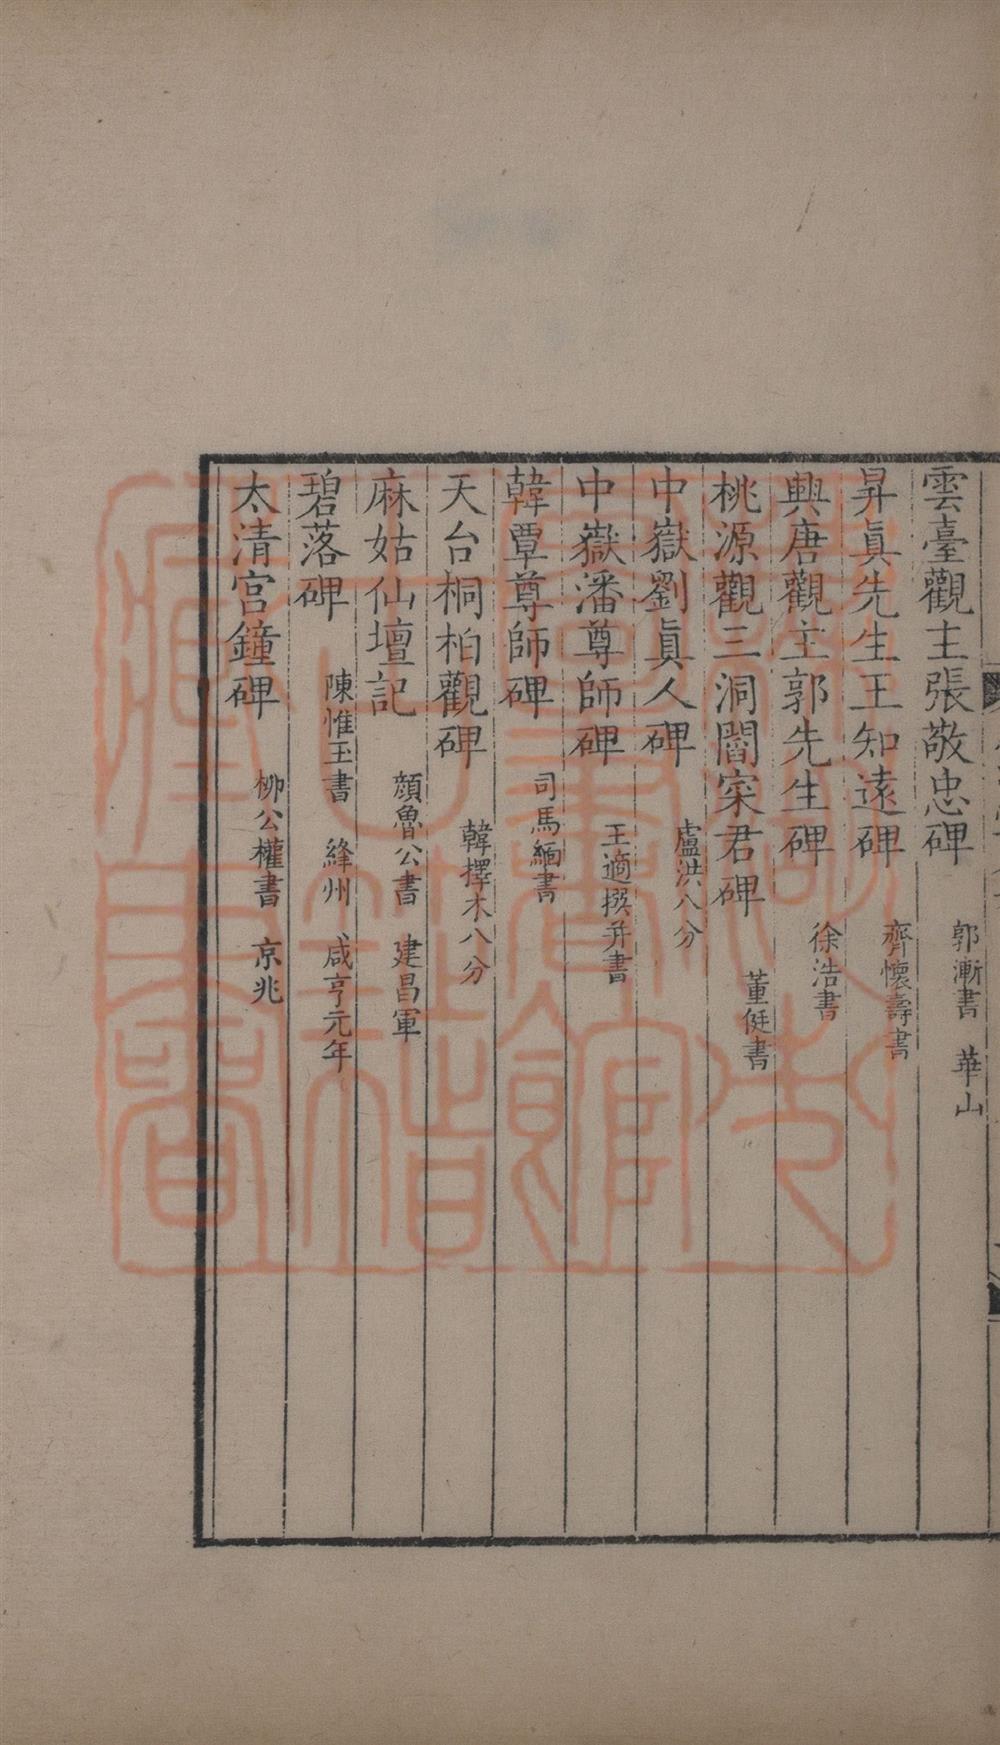 雲臺觀主張敬忠碑 郭漸書 華山
昇眞先生王知遠碑 齊懷壽書
興唐觀主郭先生碑 徐浩書
桃源觀三洞閻寀君碑 董侹書
中嶽劉眞人碑 盧洪八分
中嶽潘尊師碑 王適撰并書
韓覃尊師碑 司馬緬書
天台桐柏觀碑 韓擇木八分
麻姑仙壇記 顔魯公書 建昌軍
碧落碑 陳惟玉書 絳州 咸亨元年
太清宫鐘碑 柳公權書 京兆